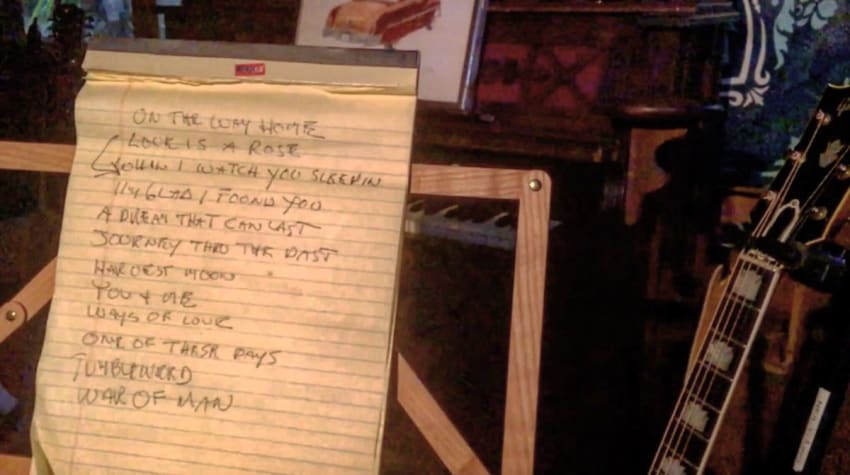 ON THE WAY HOME
LOVE IS A ROSE
WHEN I WATCH YOU SLEEPIN
I'M GLAD I FOUND YOU
A DREAM THAT CAN LAST
JOURNEY THRU THE PAST
HARVEST MOON
YOU + ME
WAYS OF LOVE
ONE OF THESE DAYS
TUMBLEWEED
WAR OF MAN